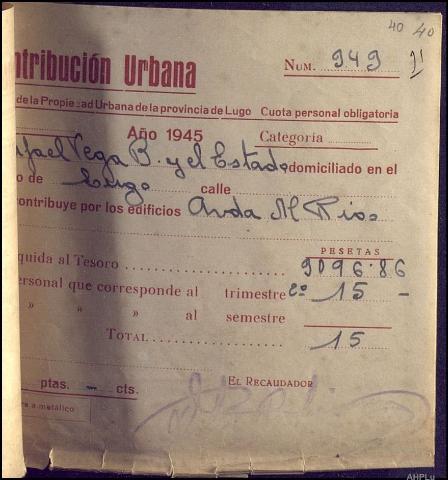 40 40
ntribución Urbana
NUM. 949
de la Propiedad Urbana de la provincia de Lugo Cuota personal obligatoria
Año 1945 Categoría
afael Vega B. y el Estado domiciliado en el
o de Lugo calle
contribuye por los edificios Avda M Rios
PESETAS
quida al Tesoro 9096·86
ersonal que corresponde al trimestre 2º 15 -
» » » al semestre
TOTAL 15
ptas. - cts. EL RECAUDADOR
a metálico
AHPLu